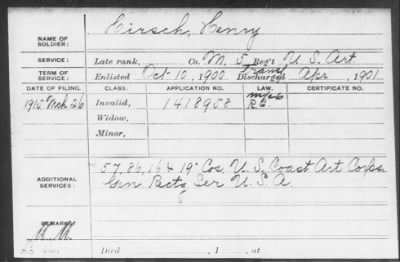 NAME OF SOLDIER: Hirsch, Henry
SERVICE: Late rank, Co. M, 5 Reg't U.S. Art
TERM OF SERVICE: Enlisted Oct 10, 1900 Trans Discharged Apr , 1901
DATE OF FILING. CLASS. APPLICATION NO. LAW. CERTIFICATE NO.
1915 Mch 26 Invalid, 1418958
Widow,
Minor,
ADDITIONAL SERVICES: 57, 86, 164 19" Cos. U.S. Coast Art Corps.
Gen Rectg Ser U.S.A.
REMARKS:
Died , 1 , at